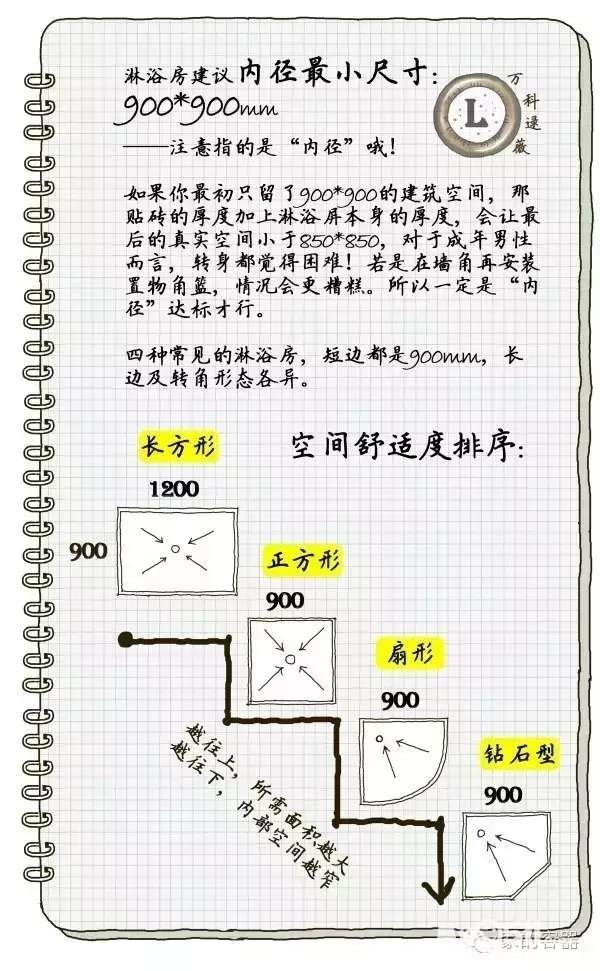 淋浴房建议内径最小尺寸：
900*900mm
——注意指的是“内径”哦！
L
万科逯薇
如果你最初只留了900*900的建筑空间，那
贴砖的厚度加上淋浴屏本身的厚度，会让最
后的真实空间小于850*850，对于成年男性
而言，转身都觉得困难！若是在墙角再安装
置物角篮，情况会更糟糕。所以一定是“内
径”达标才行。
四种常见的淋浴房，短边都是900mm，长
边及转角形态各异。
空间舒适度排序：
长方形
1200
900
正方形
900
扇形
900
钻石型
900
越往上，所需面积越大
越往下，内部空间越窄
家的容器